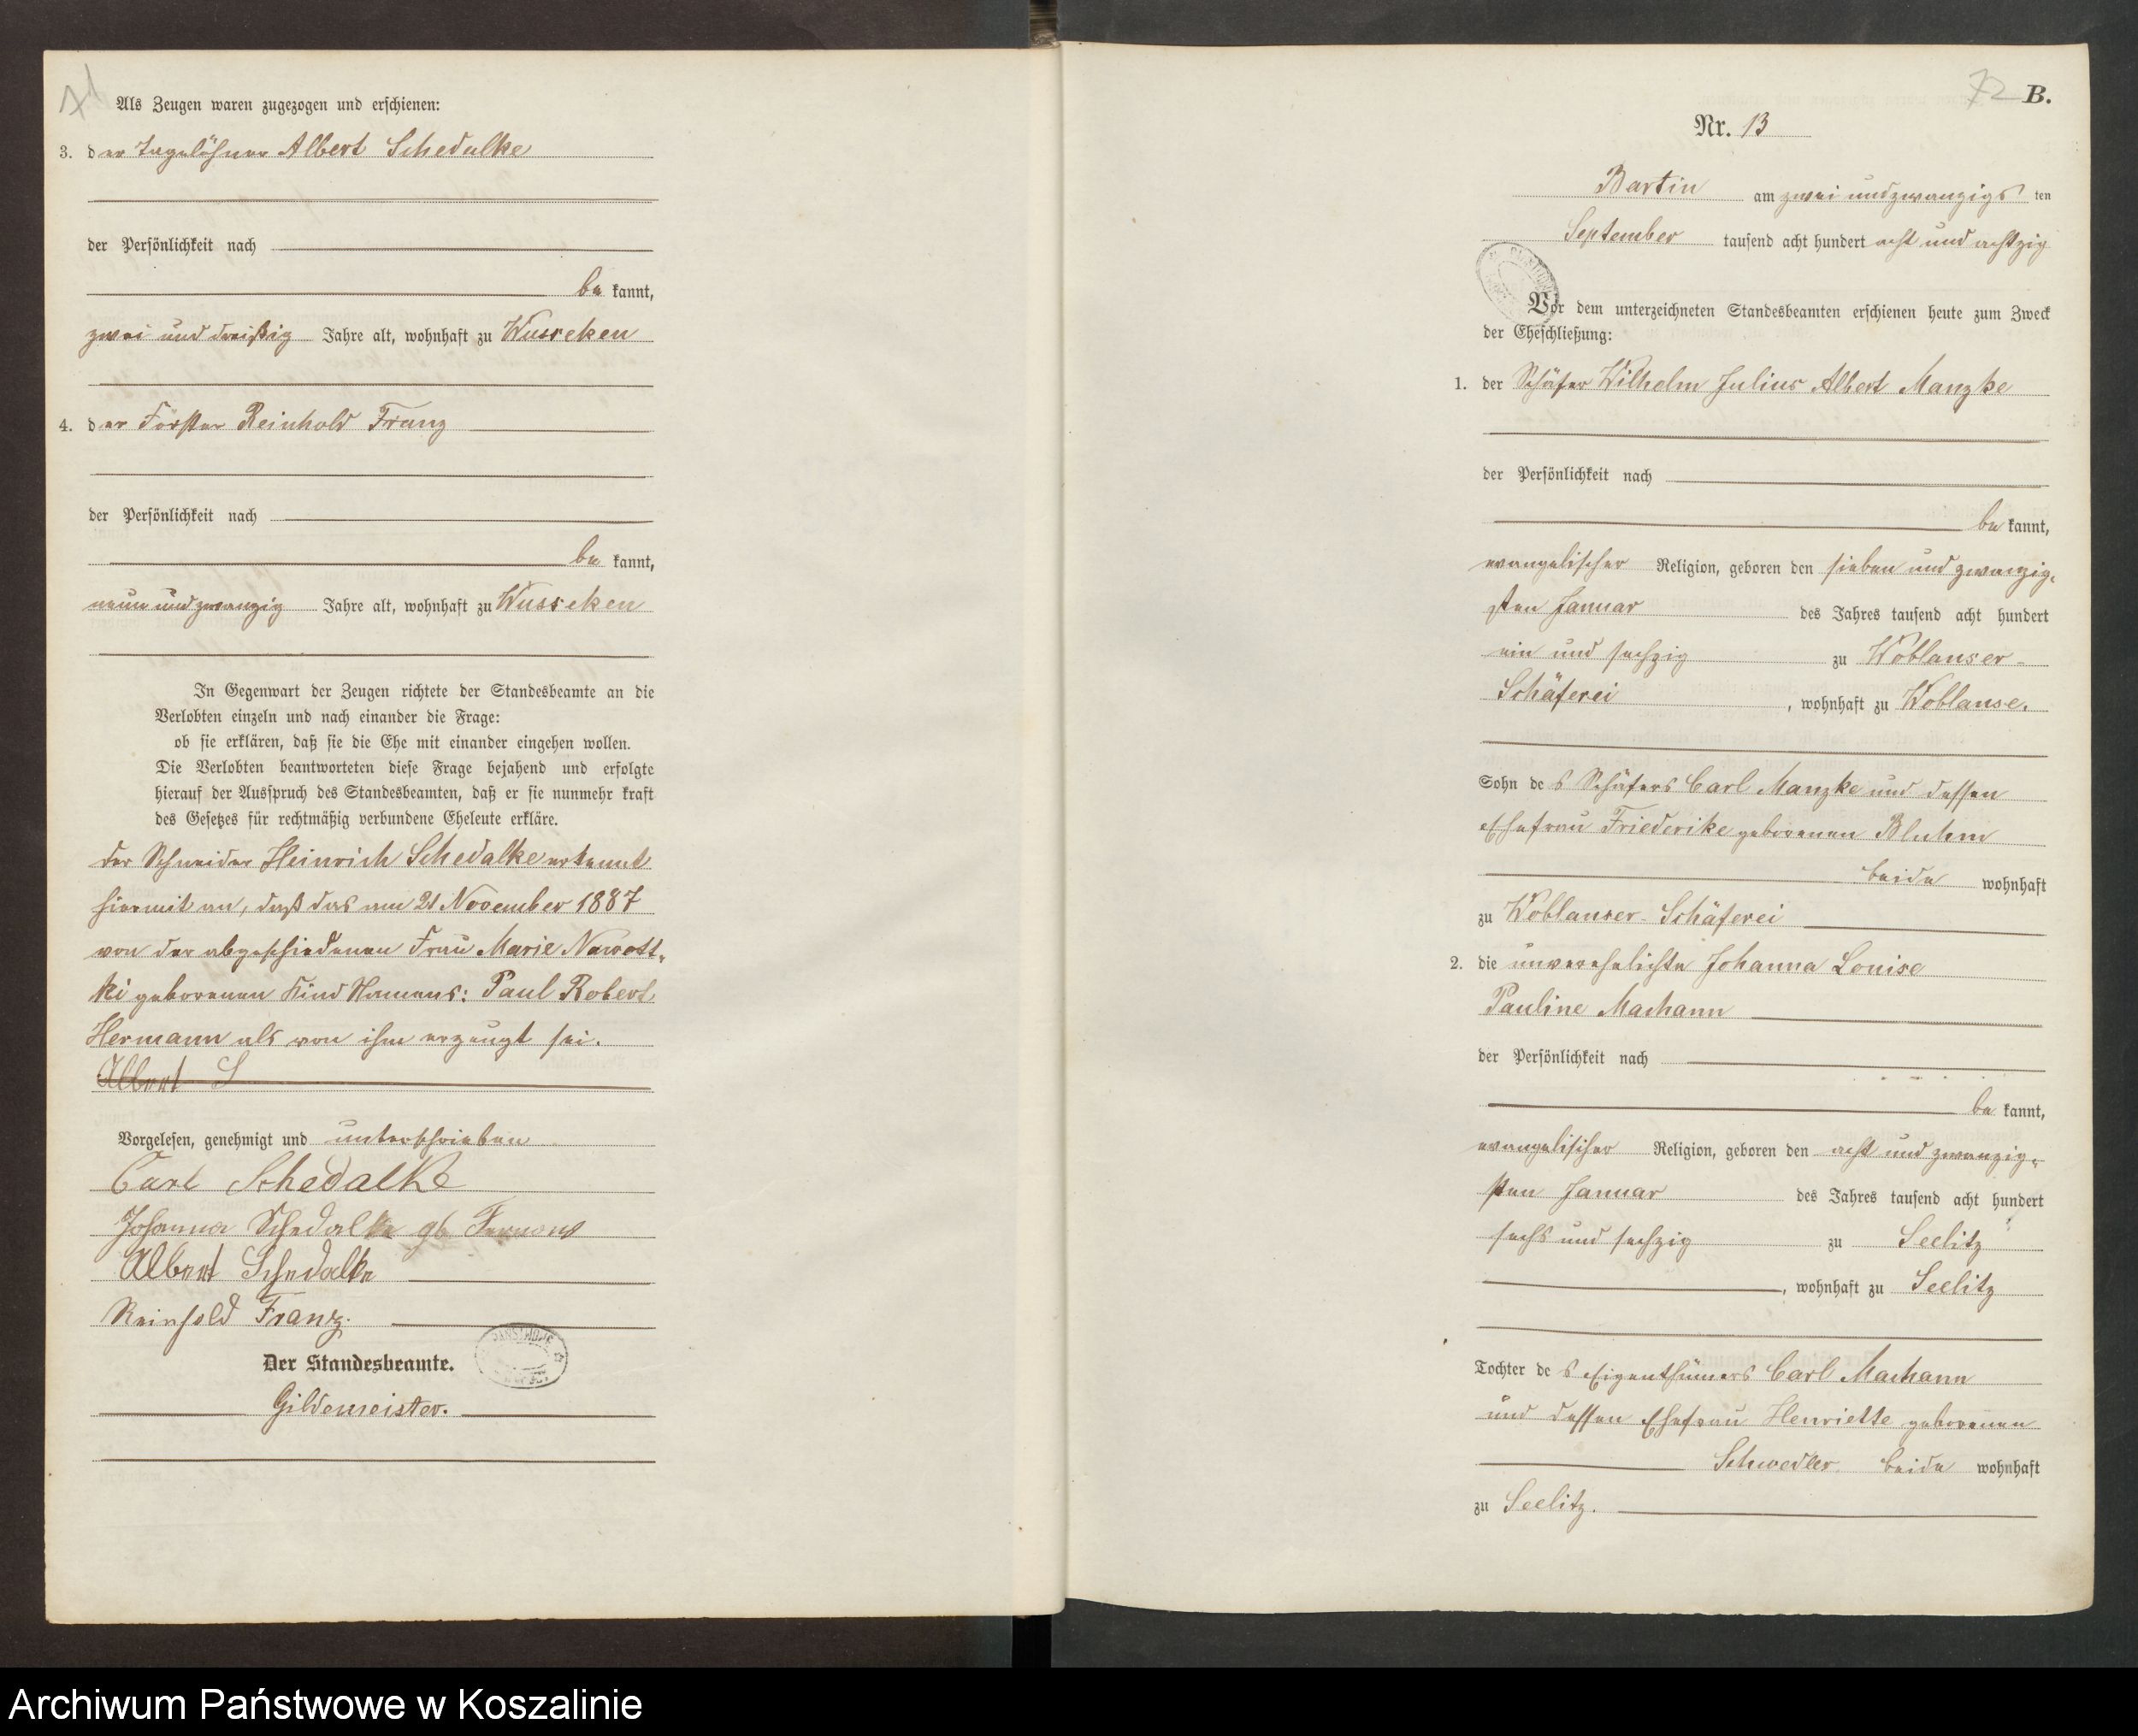 71
Als Zeugen waren zugezogen und erschienen:
3. der Tagelöhner Albert Schedalke
der Persönlichkeit nach
be kannt,
zwei und dreißig Jahre alt, wohnhaft zu Wusseken
4. der Förster Reinhold Franz
der Persönlichkeit nach
be kannt,
neun und zwanzig Jahre alt, wohnhaft zu Wusseken
In Gegenwart der Zeugen richtete der Standesbeamte an die
Verlobten einzeln und nach einander die Frage:
ob sie erklären, daß sie die Ehe mit einander eingehen wollen.
Die Verlobten beantworteten diese Frage bejahend und erfolgte
hierauf der Ausspruch des Standesbeamten, daß er sie nunmehr kraft
des Gesetzes für rechtmäßig verbundene Eheleute erkläre.
Der Schneider Heinrich Schedalke erkennt
hiermit an, daß das am 21 November 1887
von der abgeschiedenen Frau Marie Nawott-
ki geborenen Kind Namens: Paul Robert
Hermann als von ihm erzeugt sei.
Albert S
Vorgelesen, genehmigt und unterschrieben
Carl Schedalke
Johanna Schedalke gb
Albert Schedalke
Reinhold Franz.
Der Standesbeamte.
Gildemeister.
72 B.
Nr. 13
Bartin am zwei und zwanzigs ten
September tausend acht hundert acht und achtzig
Vor dem unterzeichneten Standesbeamten erschienen heute zum Zweck
der Eheschließung:
1. der Schäfer Wilhelm Julius Albert Manzke
der Persönlichkeit nach
be kannt,
evangelischer Religion, geboren den sieben und zwanzig-
sten Januar des Jahres tausend acht hundert
ein und sechzig zu Woblanser-
Schäferei, wohnhaft zu Woblanse.
Sohn des Schäfers Carl Manzke und dessen
Ehefrau Friederike geborenen Bluhm
beide wohnhaft
zu Woblanser-Schäferei
2. die unverehelichte Johanna Louise
Pauline Machann
der Persönlichkeit nach
be kannt,
evangelischer Religion, geboren den acht und zwanzig-
sten Januar des Jahres tausend acht hundert
sechs und sechzig zu Seelitz
, wohnhaft zu Seelitz
Tochter des Eigenthümers Carl Machann
und dessen Ehefrau Henriette geborenen
Schwedler beide wohnhaft
zu Seelitz.
Archiwum Państwowe w Koszalinie